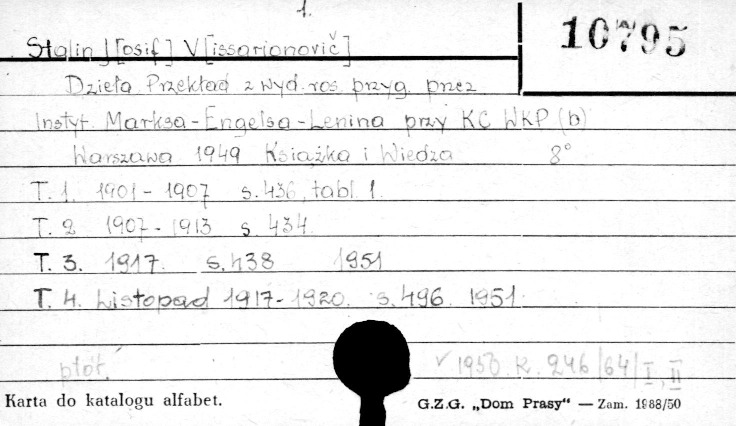 1.
10795
Stalin J[osif] V[issarionovič]
Dzieła Przekład z wyd. ros. przyg. przez
Instyt. Marksa-Engelsa-Lenina przy KC WKP (b)
Warszawa 1949 Książka i Wiedza 8°
T. 1. 1901-1907 s. 436, tabl 1.
T. 2 1907-1913 s. 434.
T. 3. 1917. s. 438 1951
T. 4. Listopad 1917-1920. s. 496. 1951.
płót. √ 1950. K. 246/64/I, II
Karta do katalogu alfabet. G.Z.G. „Dom Prasy“ — Zam. 1988/50